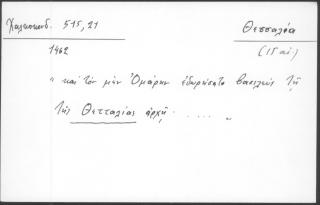 Χαλκοκονδ. 515,21
Θεσσαλία
1462
(15 αἰ.)
" καὶ τὸν μὲν Ὀμάρην ἐδωρήσατο βασιλεὺς τῇ
τῆς Θετταλίας ἀρχῇ . . . . . "